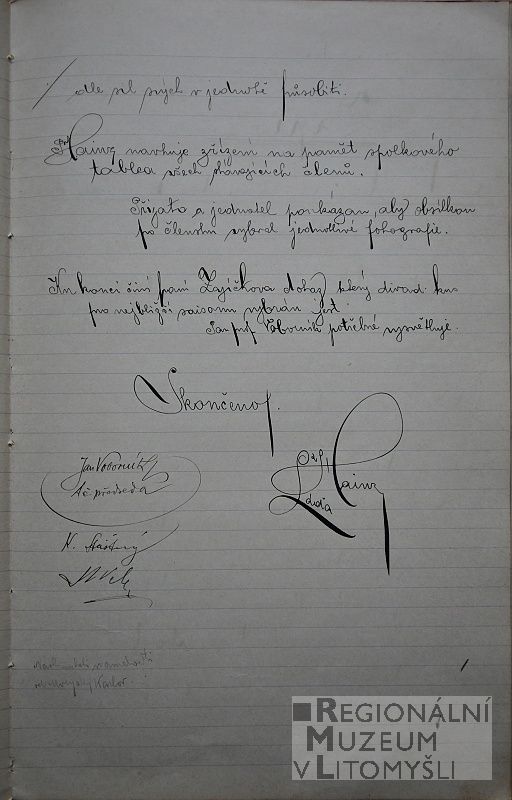 dle sil svých v jednotě působiti.
Hainz navrhuje zřízení na paměť spolkového
tablea všech stávajících členů.
Přijato a jednatel poukázán, aby obsílkou
po členstvu vybral jednotlivé fotografie.
Ku konci činí paní Zajíčkova dotaz, který divad. kus
pro nejbližší saisonu vybrán jest.
Pan prof. Voborník potřebné vysvětluje.
Skončeno.
Jan Voborník
t. č. předseda
Hainz
Láďa
N. Šťastný
REGIONÁLNÍ
MUZEUM
V LITOMYŠLI